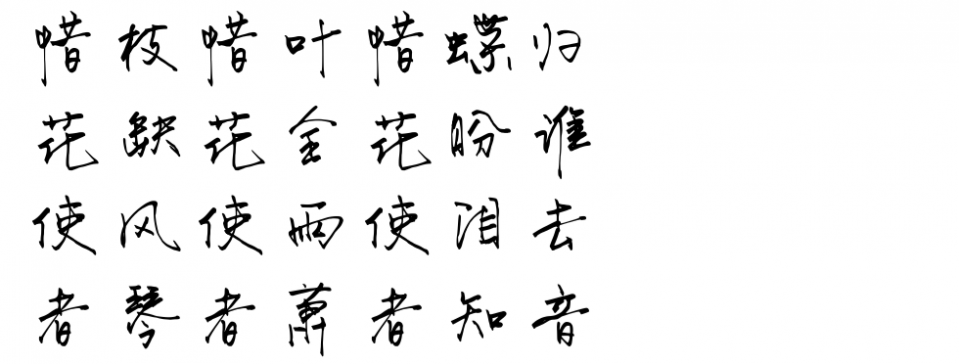 惜枝惜叶惜蝶归
花缺花全花盼谁
使风使雨使泪去
者琴者萧者知音